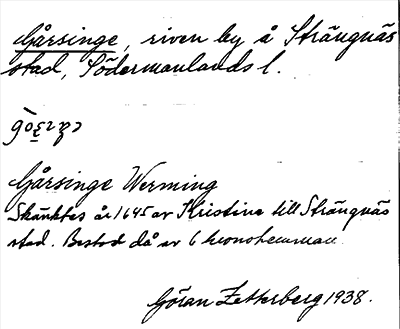 Gårsinge, riven by å Strängnäs
stad, Södermanlands l.
Gårsinge Werming
Skänktes år 1645 av Kristina till Strängnäs
stad. Bestod då av 6 kronohemman
Göran Zetterberg 1938.